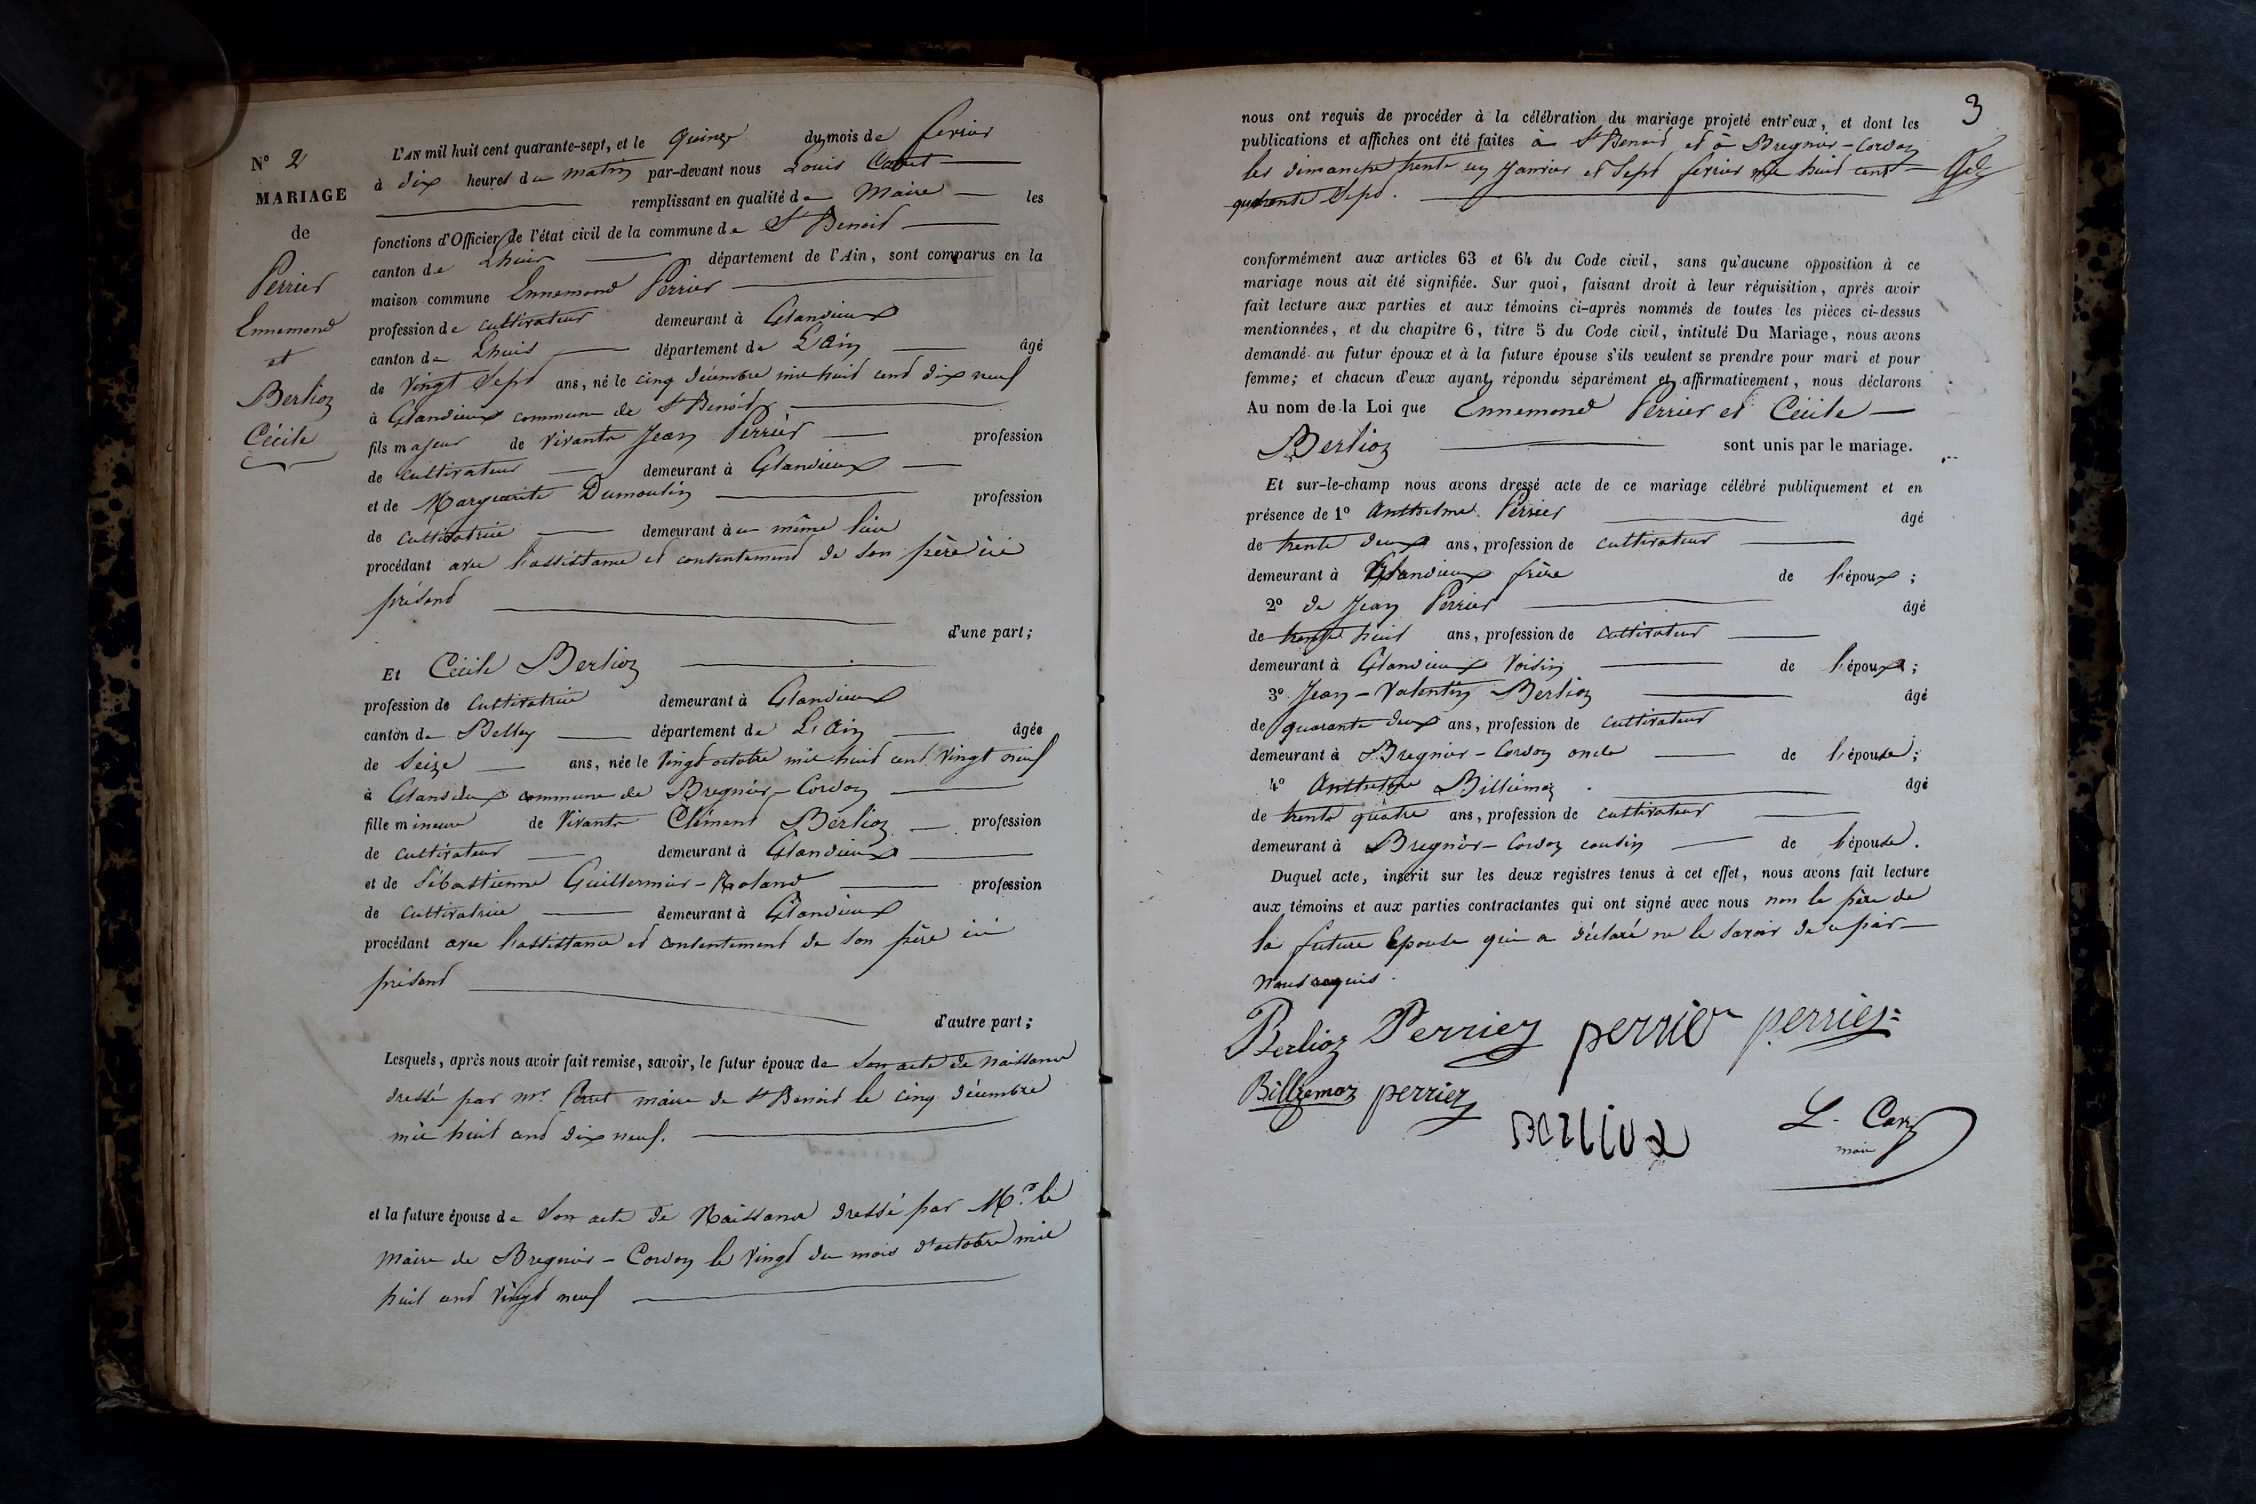 N° 2
MARIAGE
de
Perrier
Ennemond
et
Berlioz
Cécile
L'AN mil huit cent quarante-sept, et le quinze du mois de fevrier
à dix heures du matin par-devant nous Louis
remplissant en qualité de Maire les
fonctions d'Officier de l'état civil de la commune de St Benoit
canton de Lhuis département de l'Ain, sont comparus en la
maison commune Ennemond Perrier
profession de cultivateur demeurant à Glandieux
canton de Lhuis département de L'Ain âgé
de vingt sept ans, né le cinq décembre mil huit cent dix neuf
à Glandieux commune de St Benoit
fils majeur de vivants Jean Perrier profession
de cultivateur demeurant à Glandieux
et de Marguerite Dumoulin profession
de cultivatrice demeurant à u même lieu
procédant avec l'assistance et consentement de son père ici
présent
d'une part;
Et Cécile Berlioz
profession de cultivatrice demeurant à Glandieux
canton de Belley département de L'Ain âgée
de seize ans, née le vingt octobre mil huit cent vingt neuf
à Glandieux commune de Bregnier-Cordon
fille mineure de vivants Clément Berlioz profession
de cultivateur demeurant à Glandieux
et de Sébastienne Guillermier-Roland profession
de cultivatrice demeurant à Glandieux
procédant avec l'assistance et consentement de son père ici
présent
d'autre part;
Lesquels, après nous avoir fait remise, savoir, le futur époux de son acte de naissance
dressé par Mr. maire de St Benoit le cinq décembre
mil huit cent dix neuf.
et la future épouse de son acte de Naissance dressé par Mr. le
Maire de Bregnier-Cordon le vingt du mois d'octobre mil
huit cent vingt neuf
3
nous ont requis de procéder à la célébration du mariage projeté entr'eux, et dont les
publications et affiches ont été faites à St Benoit et à Bregnier-Cordon
les dimanche trente un Janvier et sept fevrier mil huit cent
quarante sept.
conformément aux articles 63 et 64 du Code civil, sans qu'aucune opposition à ce
mariage nous ait été signifiée. Sur quoi, faisant droit à leur réquisition, après avoir
fait lecture aux parties et aux témoins ci-après nommés de toutes les pièces ci-dessus
mentionnées, et du chapitre 6, titre 5 du Code civil, intitulé Du Mariage, nous avons
demandé au futur époux et à la future épouse s'ils veulent se prendre pour mari et pour
femme; et chacun d'eux ayant répondu séparément et affirmativement, nous déclarons
Au nom de la Loi que Ennemond Perrier et Cécile
Berlioz sont unis par le mariage.
Et sur-le-champ nous avons dressé acte de ce mariage célébré publiquement et en
présence de 1° Anthelme Perrier âgé
de trente deux ans, profession de cultivateur
demeurant à Glandieux frère de l'époux;
2° de Jean Perrier âgé
de trente huit ans, profession de cultivateur
demeurant à Glandieux voisin de l'époux;
3° Jean-Valentin Berlioz âgé
de quarante deux ans, profession de cultivateur
demeurant à Bregnier-Cordon oncle de l'épouse;
4° Anthelme Billiémaz âgé
de trente quatre ans, profession de cultivateur
demeurant à Bregnier-Cordon cousin de l'épouse.
Duquel acte, inscrit sur les deux registres tenus à cet effet, nous avons fait lecture
aux témoins et aux parties contractantes qui ont signé avec nous non le père de
la future Epouse qui a déclaré ne le savoir de ce par
nous requis.
Berlioz Perrier perrier perrier
Billiemaz perrier
L. maire